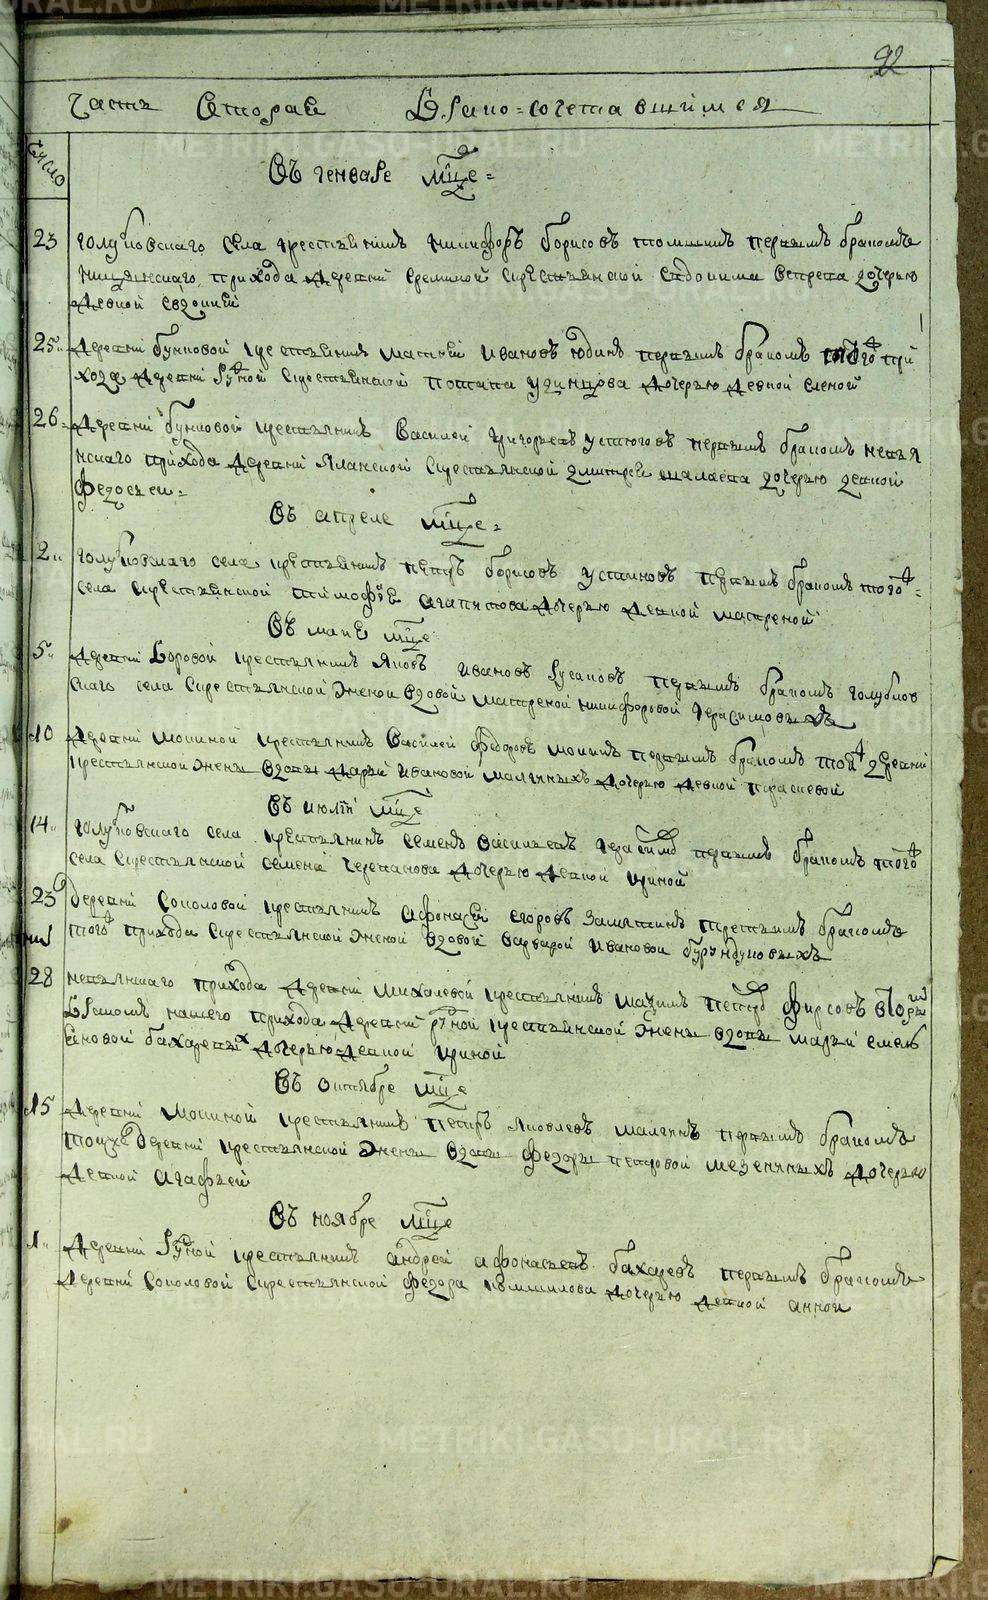 92
Часть Вторая Брако=сочетавшимся
число
Въ генваре мце=
23 голубковскаго села крестьянинъ никифоръ борисовъ первымъ бракомъ
ницынскаго прихода деревни ереминой крестьянской евдокима дочерью
девкой евдокией
25 деревни бунковой крестьянинъ матфей Ивановъ юдинъ первымъ бракомъ того при
хода деревни Рудной крестьянской потапа удинцова дочерью девкой еленой
26 деревни бунковой крестьянинъ Василей григорьевъ устюговъ первымъ бракомъ невья
нскаго прихода деревни Яланской крестьянской дмитрей шалаева дочерью девкой
федосьеи=
Въ апреле мце=
2 голубковскаго села крестьянинъ петръ борисовъ устиновъ первымъ бракомъ того=
села крестьянской тимофея агапитова дочерью девкой матреной
Въ маие мце
5 деревни Боровой крестьянинъ Яковъ Ивановъ Русаковъ первымъ бракомъ голубков
скаго села крестьянской женой вдовой матреной никифоровой герасимовыхъ
10 деревни мокиной крестьянинъ Василей федоровъ мокинъ первымъ бракомъ той деревни
крестьянской жены вдовы дарьи Ивановой малыгиныхъ дочерью девкой парасковей
Въ июлии мце
14 голубковскаго села крестьянинъ семенъ васильевъ герасимовъ первымъ бракомъ того
села крестьянской семена черепанова дочерью девкой Ириной
23 деревни Соколовой крестьянинъ афонасей егоровъ Замятинъ третьимъ бракомъ
того прихода крестьянской женой вдовой варварой Ивановой бурундуковыхъ
28 невьянскаго прихода деревни михалевой крестьянинъ максимъ петровъ фирсовъ вторым
Бракомъ нашего прихода деревни рудной крестьянской жены вдовы марьи емель
яновой бахаревых дочерью девкой Ириной
Въ октябре мце
15 деревни мокиной крестьянинъ петръ Яковлевъ малыгинъ первымъ бракомъ
тоижъ деревни крестьянской жены вдовы федоры петровой мезениныхъ дочерью
девкой агафьей
Въ ноябре мце
1 деревни Рудной крестьянинъ андрей афонасьевъ бахаревъ первымъ бракомъ
деревни Соколовой крестьянской федора дочерью девкой анной
METRIKI.GASO-URAL.RU